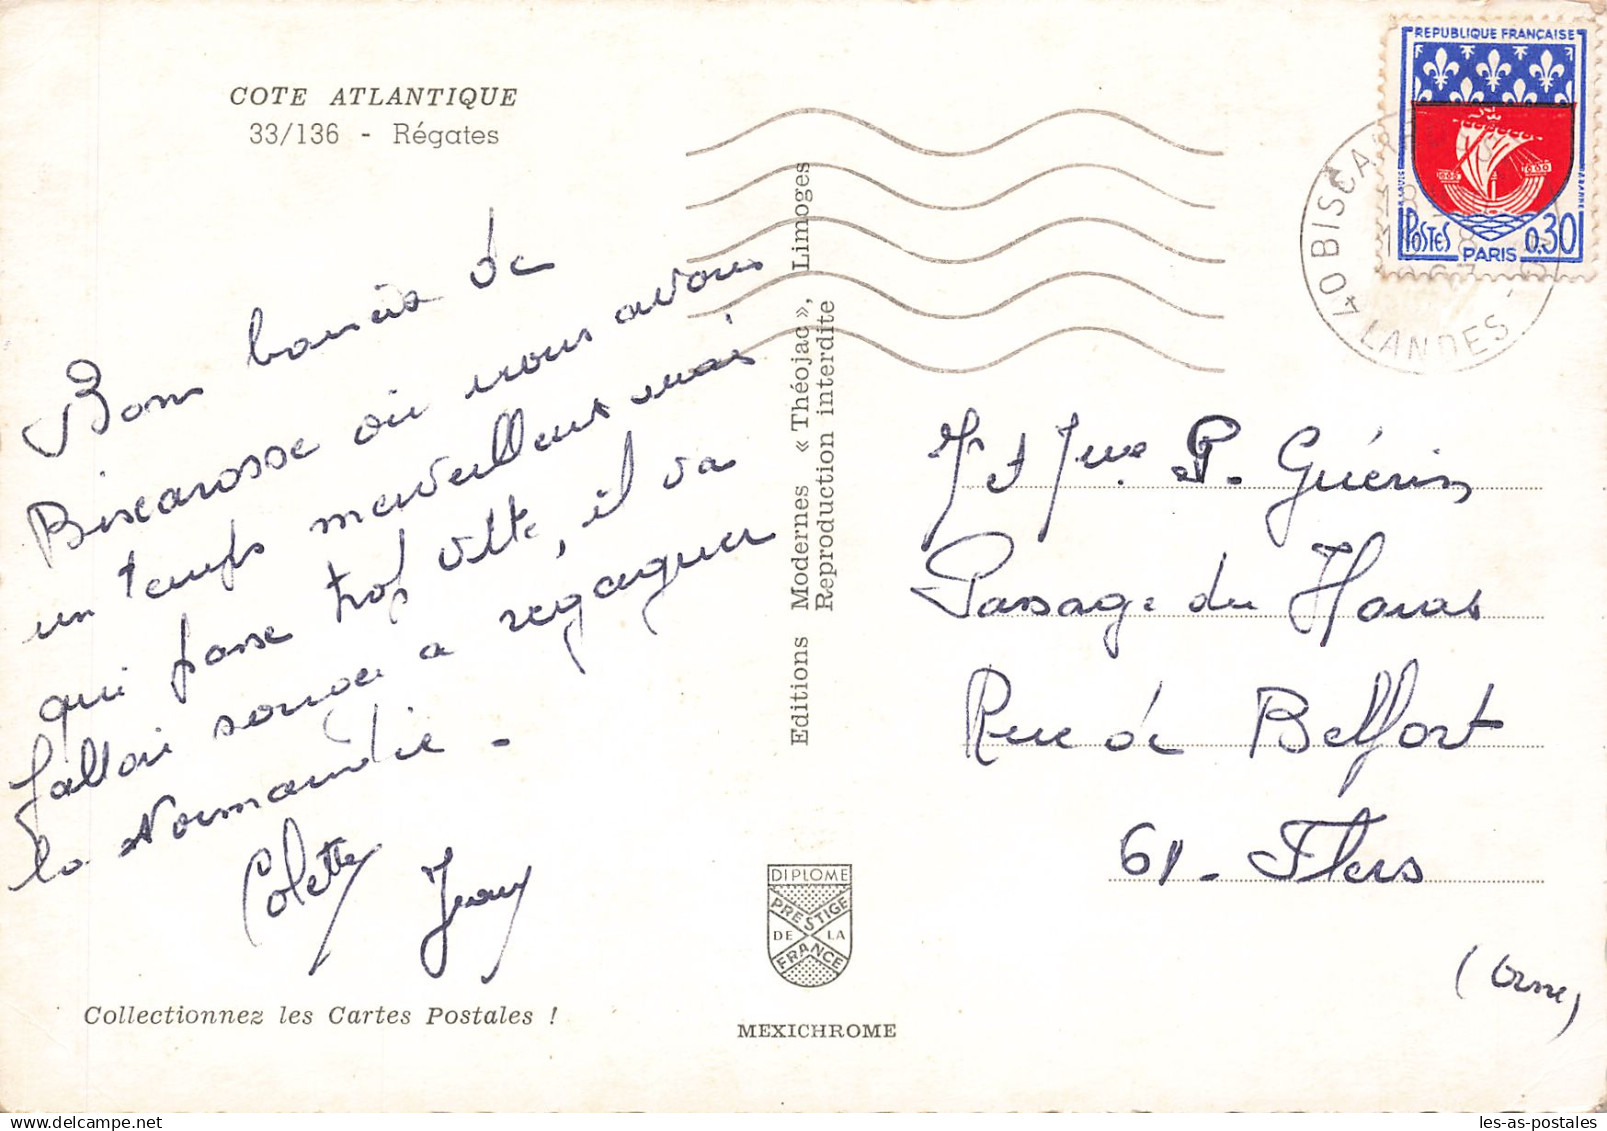 COTE ATLANTIQUE
33/136 - Régates
Bons baisers de
Biscarosse où nous avons
un temps merveilleux mais
qui passe trop vite, il va
falloir songer a regagner
la Normandie -
Colette Jean
Collectionnez les Cartes Postales !
Editions Modernes « Théojac », Limoges
Reproduction interdite
DIPLOME
PRESTIGE
DE LA
FRANCE
MEXICHROME
REPUBLIQUE FRANÇAISE
POSTES
0,30
PARIS
40 BISCAR
LANDES
18
M et Mme P. Guérin
Passage du Haras
Rue de Belfort
61 - Flers
(Orne)
les-as-postales